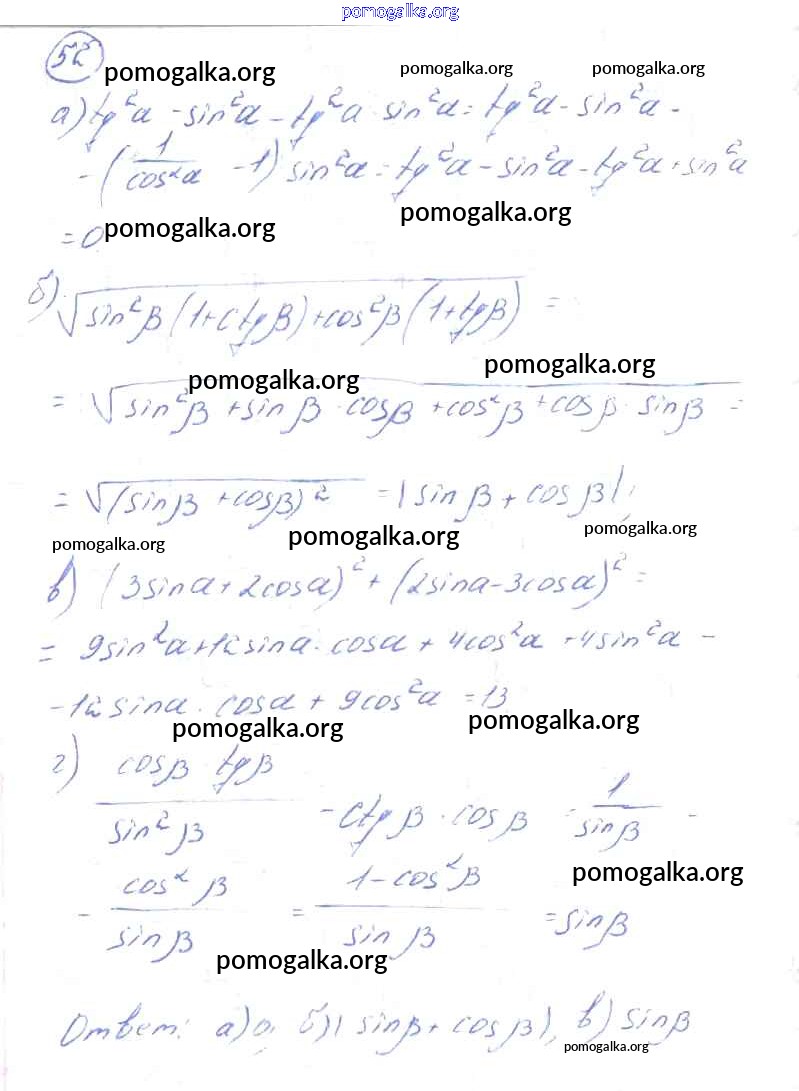 pomogalka.org
52
pomogalka.org pomogalka.org pomogalka.org
а) tg²α - sin²α - tg²α · sin²α = tg²α - sin²α -
- (1/cos²α - 1) sin²α = tg²α - sin²α - tg²α + sin²α
pomogalka.org
= 0 pomogalka.org
б) √(sin²β (1 + ctgβ) + cos²β (1 + tgβ)) =
pomogalka.org
pomogalka.org
= √(sin²β + sinβ · cosβ + cos²β + cosβ · sinβ) =
= √((sinβ + cosβ)²) = |sinβ + cosβ|;
pomogalka.org
pomogalka.org
pomogalka.org
в) (3sinα + 2cosα)² + (2sinα - 3cosα)² =
= 9sin²α + 12sinα · cosα + 4cos²α + 4sin²α -
- 12sinα · cosα + 9cos²α = 13
pomogalka.org pomogalka.org
г) (cosβ · tgβ)/sin²β - ctgβ · cosβ = 1/sinβ -
pomogalka.org
- cos²β/sinβ = (1 - cos²β)/sinβ = sinβ
pomogalka.org
Ответ: а) 0, б) |sinβ + cosβ|, в) sinβ
pomogalka.org